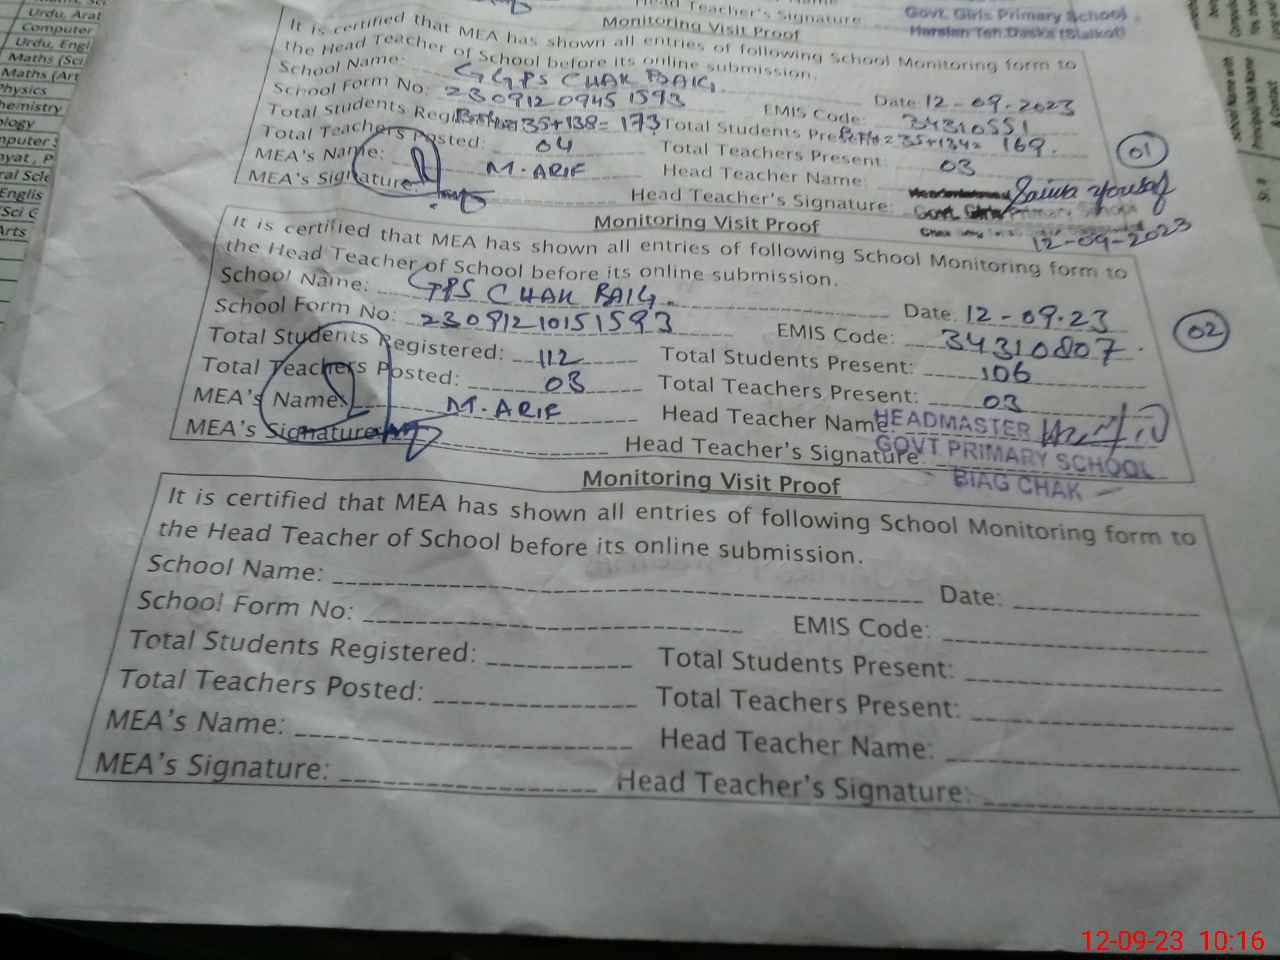 Head Teacher's Signature
Govt. Girls Primary School
Monitoring Visit Proof
It is certified that MEA has shown all entries of following School Monitoring form to
the Head Teacher of School before its online submission.
School Name: GGPS CHAK BAIG
Date 12-09-2023
School Form No: 2309120945 1593
EMIS Code: 34310551
Total Students Registered: 35+138=173
Total Students Present: 35+134= 169.
Total Teachers Posted: 04
Total Teachers Present: 03
01
MEA's Name: M. ARIF
Head Teacher Name:
MEA's Signature:
Head Teacher's Signature:
Govt. Girls Primary School
12-09-2023
Monitoring Visit Proof
It is certified that MEA has shown all entries of following School Monitoring form to
the Head Teacher of School before its online submission.
School Name: GPS CHAK BAIG.
Date. 12-09-23
School Form No: 23091210151593
EMIS Code: 34310807
02
Total Students Registered: 112
Total Students Present: 106
Total Teachers Posted: 03
Total Teachers Present: 03
MEA's Name: M. ARIF
Head Teacher Name:
HEADMASTER
MEA's Signature:
Head Teacher's Signature:
GOVT PRIMARY SCHOOL
BIAG CHAK
Monitoring Visit Proof
It is certified that MEA has shown all entries of following School Monitoring form to
the Head Teacher of School before its online submission.
School Name:
Date:
School Form No:
EMIS Code:
Total Students Registered:
Total Students Present:
Total Teachers Posted:
Total Teachers Present:
MEA's Name:
Head Teacher Name:
MEA's Signature:
Head Teacher's Signature:
12-09-23 10:16